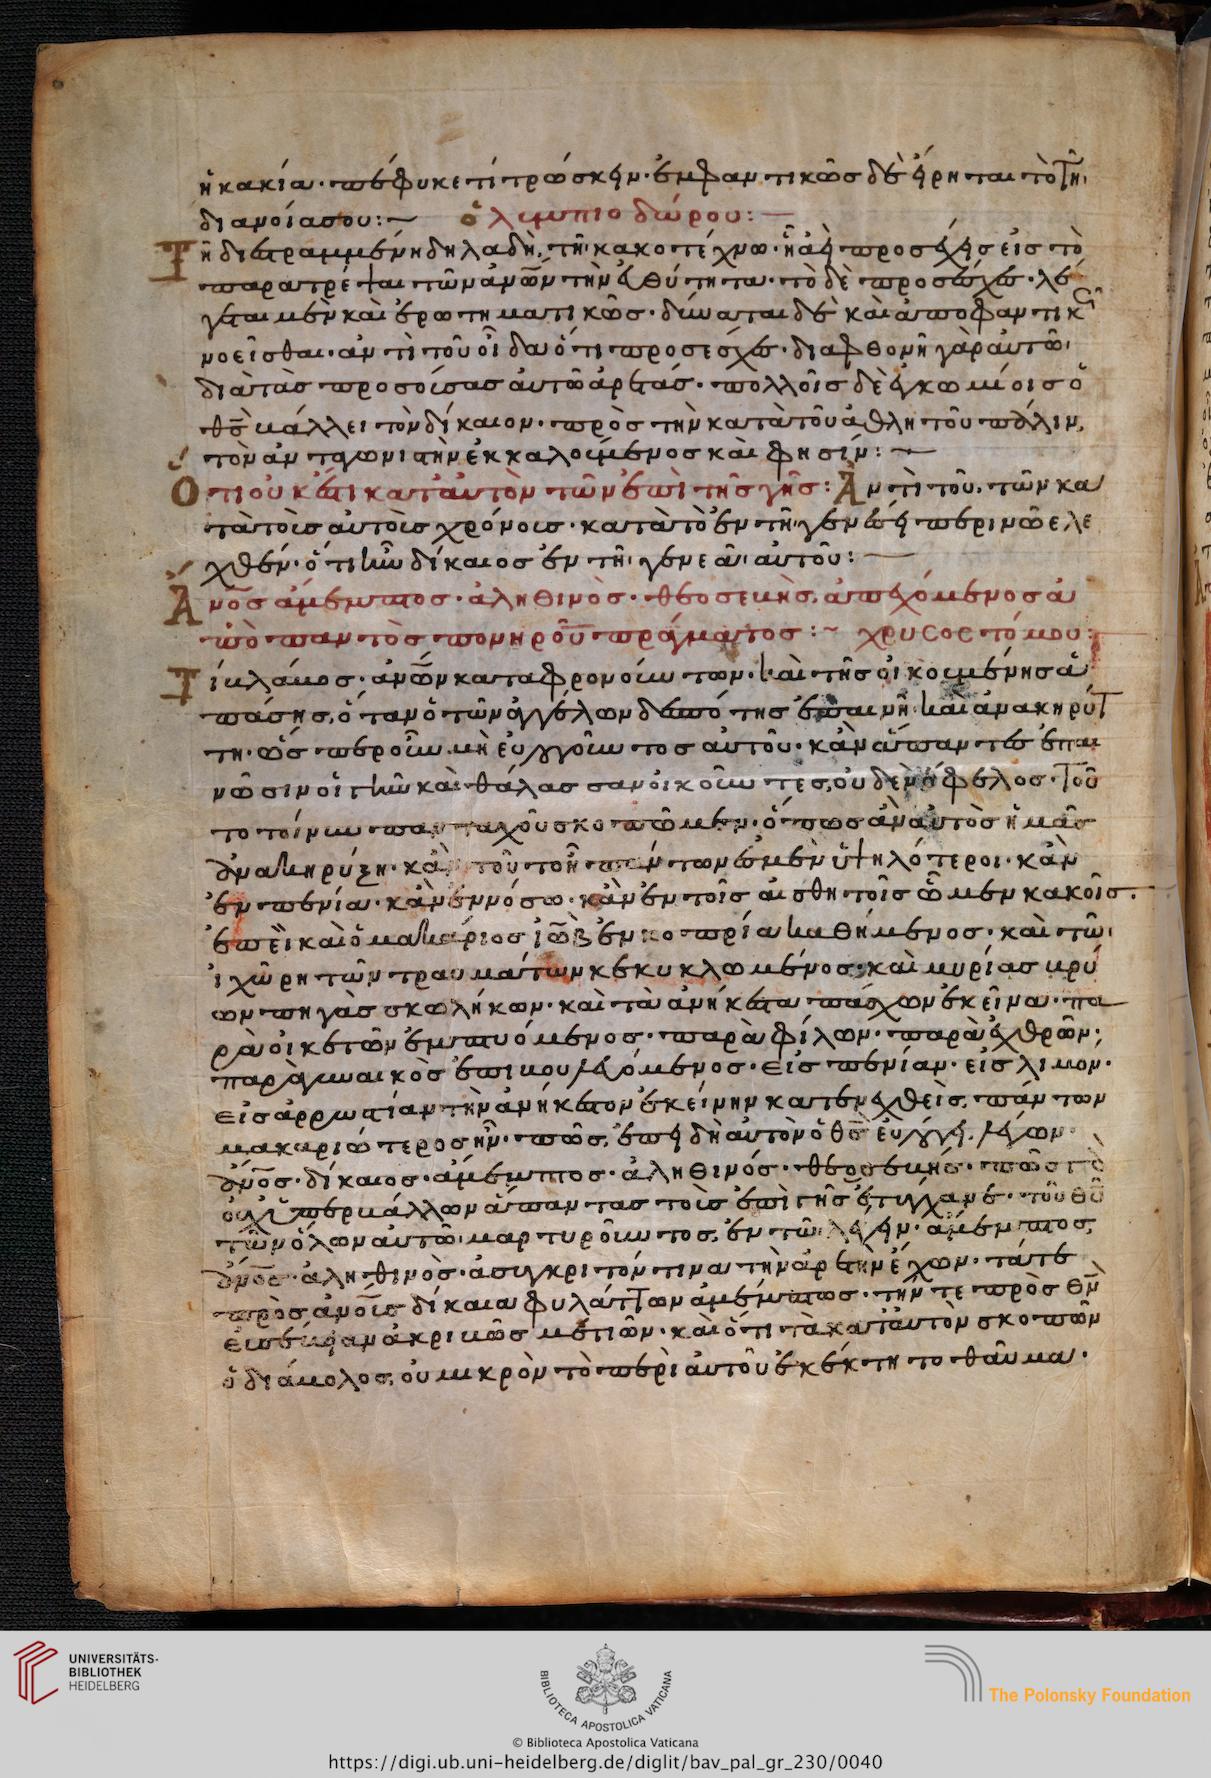 ἡ κακία· πέφυκε τιτρώσκειν· ἐμφαντικῶς δὲ εἴρηται τὸ τῆ
διανοία σου:~ ὀλυμπιοδώρου:—
Τῆ διεστραμμένη δηλαδὴ· τῆ κακοτέχνω· ἣ ἀεὶ προσέχεις εἰς τὸ
παρατρέψαι τῶν ἀνῶν τὴν εὐθύτητα· τὸ δὲ προσέσχες· λέ
γεται μὲν καὶ ἐρωτηματικῶς· δύναται δὲ καὶ ἀποφαντικῶς
νοεῖσθαι· ἀντὶ τοῦ οἶδα ὅτι προσέσχες· διαφθονῆ γὰρ αὐτῶ·
διὰ τὰς προσούσας αὐτῶ ἀρετάς· πολλοῖς δὲ ἐγκωμίοις ὁ
θς βάλλει τὸν δίκαιον· πρὸς τὴν κατὰ τοῦ ἀθλητοῦ πάλιν,
τὸν ἀνταγωνιστὴν ἐκκαλούμενος καὶ φησίν:~
Ὅτι οὐκ ἔστι κατ' αὐτὸν τῶν ἐπὶ τῆς γῆς: Ἀντὶ τοῦ, τῶν κα
τὰ τοὺς αὐτοὺς χρόνους· κατὰ τὸ ἐν τῆ γενέσει περὶ νῶε λε
χθέν· ὅτι ἦν δίκαιος ἐν τῆ γενεᾶ αὐτοῦ:—
Ἄνος ἄμεμπτος· ἀληθινὸς· θεοσεβὴς, ἀπεχόμενος ἀ
πὸ παντὸς πονηροῦ πράγματος:~ χρυσοστόμου:
Τί βλάβος· ἀνων καταφρονούντων· καὶ τῆς οἰκουμένης ἁ
πάσης, ὅταν ὁ τῶν ἀγγέλων δεσπότης ἐπαινῆ· καὶ ἀνακηρύτ
τη· ὥσπερ οὖν μὴ εὐλογοῦντος αὐτοῦ· κἂν ἅπαντες ἐπαι
νῶσιν οἱ γῆν καὶ θάλασσαν οἰκοῦντες, οὐδὲν ὄφελος· τοῦ
το τοίνυν πανταχοῦ σκοπῶμεν· ὅπως ἂν αὐτὸς ἡμᾶς
ἀνακηρύξη· κἂν τοῦτο ἦ πάντων ἐσμὲν ὑψηλότεροι· κἂν
ἐν πενία· κἂν ἐν νόσω· κἂν ἐν τοῖς αἰσθητοῖς ὦμεν κακοῖς·
ἐπεὶ καὶ ὁ μακάριος ἰὼβ ἐν κοπρία καθήμενος· καὶ τῶ
ἰχῶρι τῶν τραυμάτων κεκυκλωμένος· καὶ μυρίας βρύ
ων πηγὰς σκωλήκων· καὶ τὰ ἀνήκεστα πάσχων ἐκεῖνα· πα
ρὰ οἰκετῶν ἐμπτυόμενος· παρὰ φίλων· παρὰ ἐχθρῶν,
παρὰ γυναικὸς ἐπιβουλευόμενος· εἰς πενίαν· εἰς λιμόν·
εἰς ἀρρωστίαν τὴν ἀνήκεστον ἐκείνην κατενεχθεὶς, πάντων
μακαριώτερος ἦν· πῶς, ἐπειδὴ αὐτὸν ὁ θς εὐλόγει, λέγων
ἄνος· δίκαιος· ἄμεμπτος· ἀληθινός· θεοσεβής·
οὐχ ὑπερβάλλων ἅπαντας τοὺς ἐπὶ γῆς ἐτύγχανε· τοῦ θῦ
τῶν ὅλων αὐτῶ μαρτυροῦντος, ἐν τῶ λέγειν· ἄμεμπτος,
ἄνος· ἀληθινὸς· ἀσύγκριτόν τινα τὴν ἀρετὴν ἔχων· τά τε
πρὸς ἀνους δίκαια φυλάττων ἀμέμπτως· τήν τε πρὸς θν
εὐσέβειαν ἀκριβῶς μετιὼν· καὶ ὅτι τὰ κατ' αὐτὸν σκοπῶν
ὁ διάβολος, οὐ μικρὸν τὸ περὶ αὐτοῦ ἐκέκτητο θαῦμα·
UNIVERSITÄTS-
BIBLIOTHEK
HEIDELBERG
BIBLIOTECA APOSTOLICA VATICANA
The Polonsky Foundation
© Biblioteca Apostolica Vaticana
https://digi.ub.uni-heidelberg.de/diglit/bav_pal_gr_230/0040